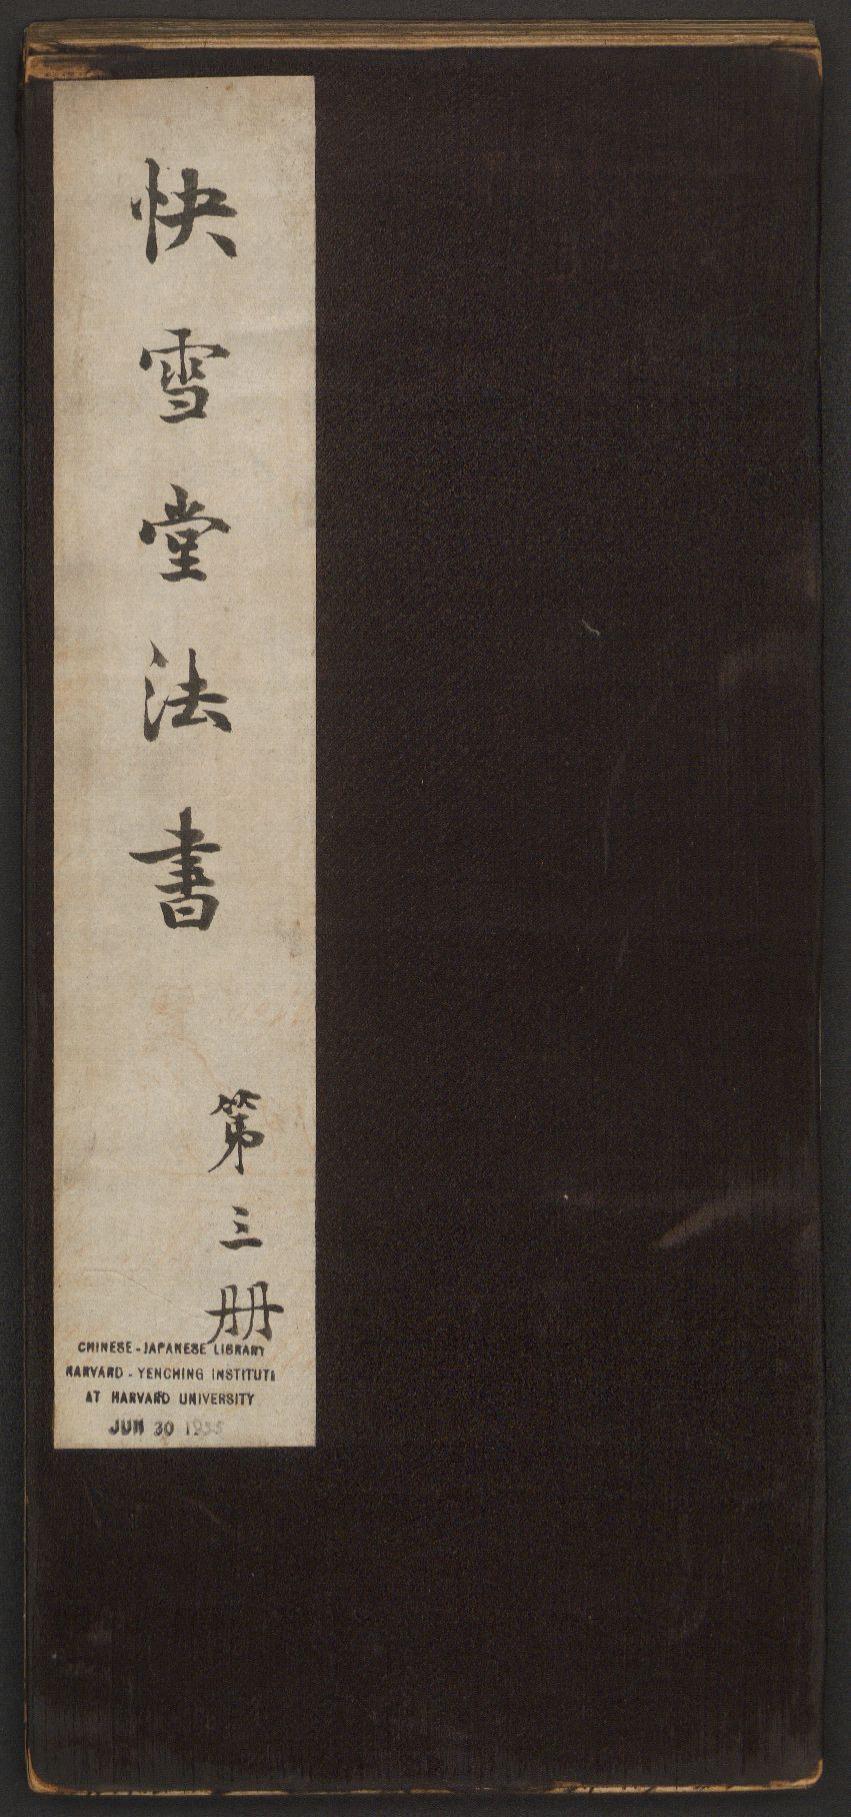 快雪堂法書
第三册
CHINESE-JAPANESE LIBRARY
HARVARD-YENCHING INSTITUTE
AT HARVARD UNIVERSITY
JUN 30 1955